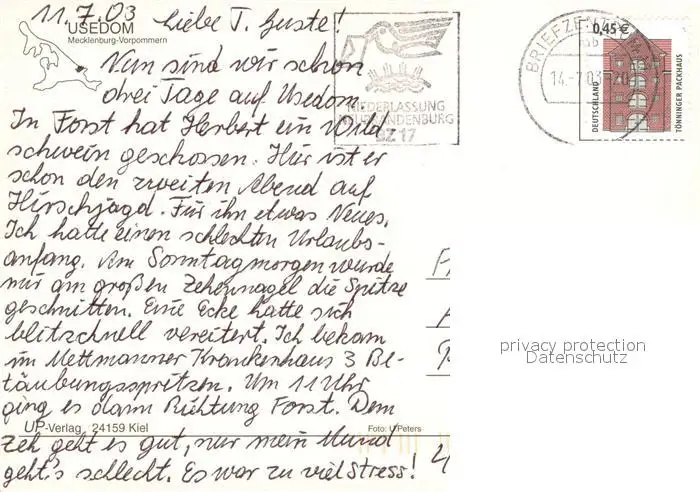 11.7.03 Liebe T. Guste!
USEDOM
Mecklenburg-Vorpommern
Nun sind wir schon
drei Tage auf Usedom.
In Forst hat Herbert ein Wild
schwein geschossen. Hier ist er
schon den zweiten Abend auf
Hirschjagd. Für ihn etwas Neues.
Ich hatte einen schlechten Urlaubs-
anfang. Am Sonntagmorgen wurde
mir am großen Zehennagel die Spitze
geschnitten. Eine Ecke hatte sich
blitzschnell vereitert. Ich bekam
im Mettmanner Krankenhaus 3 Be-
täubungsspritzen. Um 11 Uhr
ging es dann Richtung Forst. Dem
UP-Verlag 24159 Kiel
Foto: U. Peters
Zeh geht es gut, nur mein Mund
geht's schlecht. Es war zu viel Stress!
NIEDERLASSUNG
NEUBRANDENBURG
BZ 17
BRIEFZENTRUM
14.-7.03-20
0,45 €
DEUTSCHLAND
TÖNNINGER PACKHAUS
privacy protection
Datenschutz